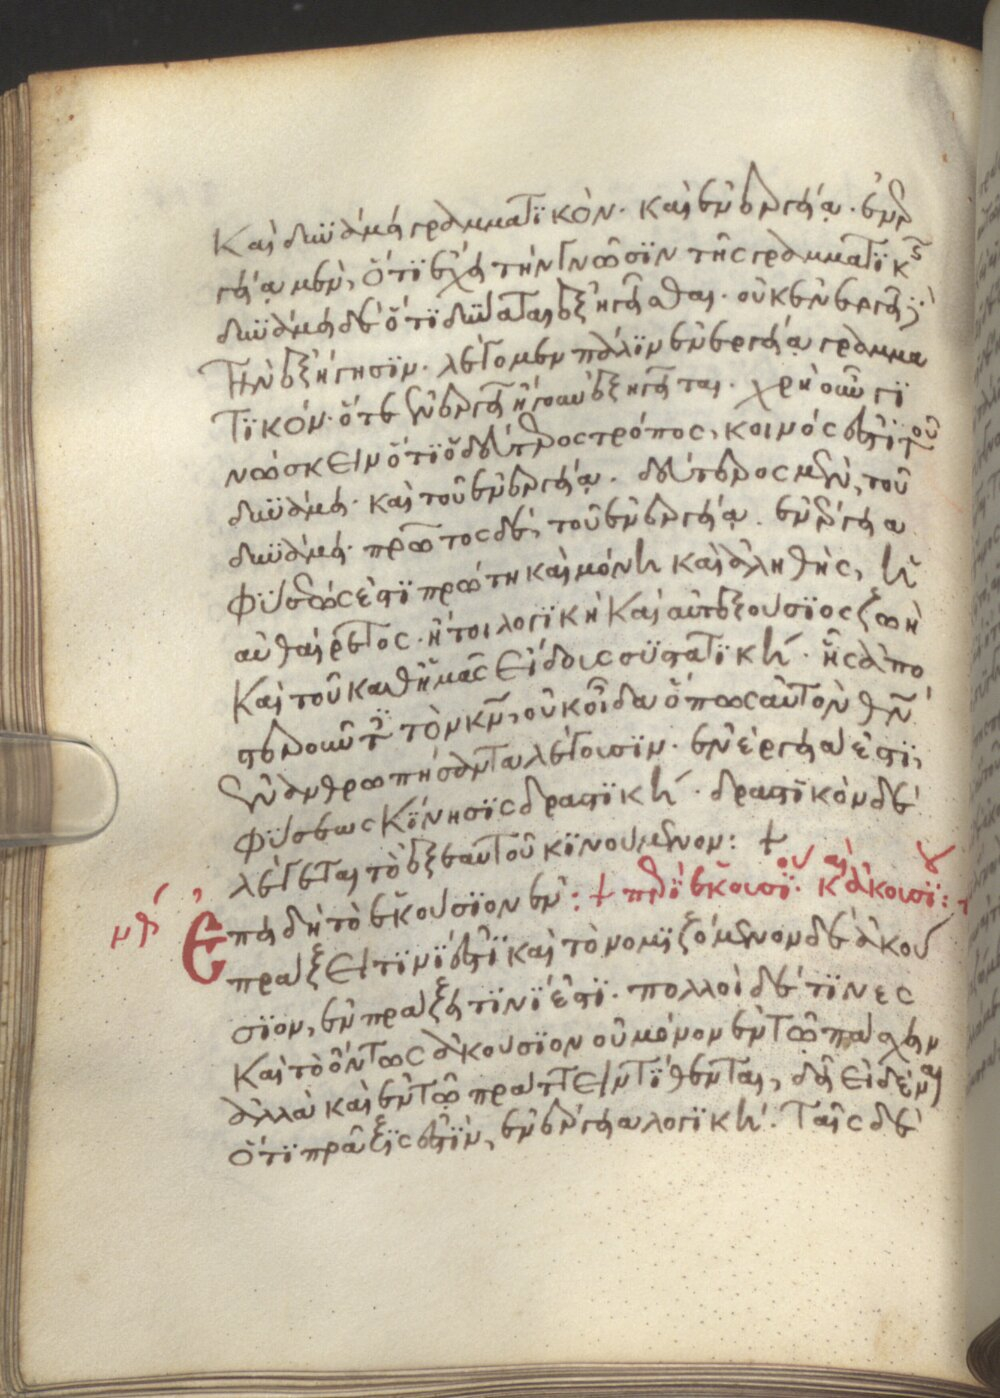 Καὶ δυνάμει γραμματικὸν· καὶ ἐνεργείᾳ· ἐνερ
γείᾳ μὲν, ὅτι ἔχει τὴν γνῶσιν τῆς γραμματικῆς
δυνάμει δὲ ὅτι δύναται ἐξηγεῖσθαι· οὐκ ἐνεργεῖ
τὴν ἐξήγησιν. λέγομεν πάλιν ἐνεργείᾳ γραμμα
τικόν· ὅτε ἐνεργεῖ ἤγουν ἐξηγεῖται. χρὴ οὖν γι
νώσκειν ὅτι ὁ δεύτερος τρόπος, κοινός ἐστι τοῦ
δυνάμει· καὶ τοῦ ἐνεργείᾳ. δεύτερος μὲν, τοῦ
δυνάμει· πρῶτος δὲ, τοῦ ἐνεργείᾳ. ἐνέργεια
φύσεώς ἐστι πρώτη καὶ μόνη καὶ ἀληθὴς, ἡ
αὐθαίρετος· ἤτοι λογικὴ καὶ αὐτεξούσιος ζωὴ
καὶ τοῦ καθ' ἡμᾶς εἴδους συστατικὴ· ἧς ἀπο
στεροῦντες τὸν κν, οὐκ οἶδα ὅπως αὐτὸν θν
ἐνανθρωπήσαντα λέγουσιν. ἐνέργειά ἐστι,
φύσεως κίνησις δραστικὴ· δραστικὸν δὲ
λέγεται τὸ ἐξ ἑαυτοῦ κινούμενον: +
μβ Ἐπειδὴ τὸ ἑκούσιον ἐν: + περὶ ἑκουσίου καὶ ἀκουσίου:
πράξει τινί ἐστι καὶ τὸ νομιζόμενον δὲ ἀκού
σιον, ἐν πράξει τινί ἐστι. πολλοὶ δέ τινες
καὶ τὸ ὄντως ἀκούσιον οὐ μόνον ἐν τῷ πάσχειν
ἀλλὰ καὶ ἐν τῷ πράττειν τίθενται, δεῖ εἰδέναι
ὅτι πρᾶξίς ἐστιν, ἐνέργεια λογικὴ. ταῖς δὲ